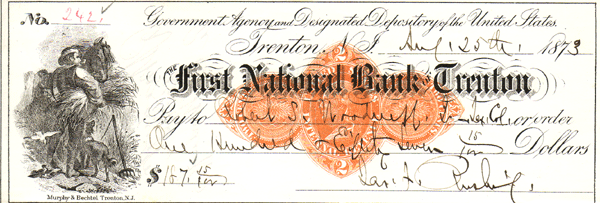 No. 242.
Government Agency and Designated Depository of the United States.
Trenton, N.J. Aug. 25th, 1873
THE First National Bank OF Trenton
Pay to S. Woodruff, or order
One Hundred Eighty Seven 15/100 Dollars
$ 187 15/100
2 2
Murphy & Bechtel Trenton, N.J.